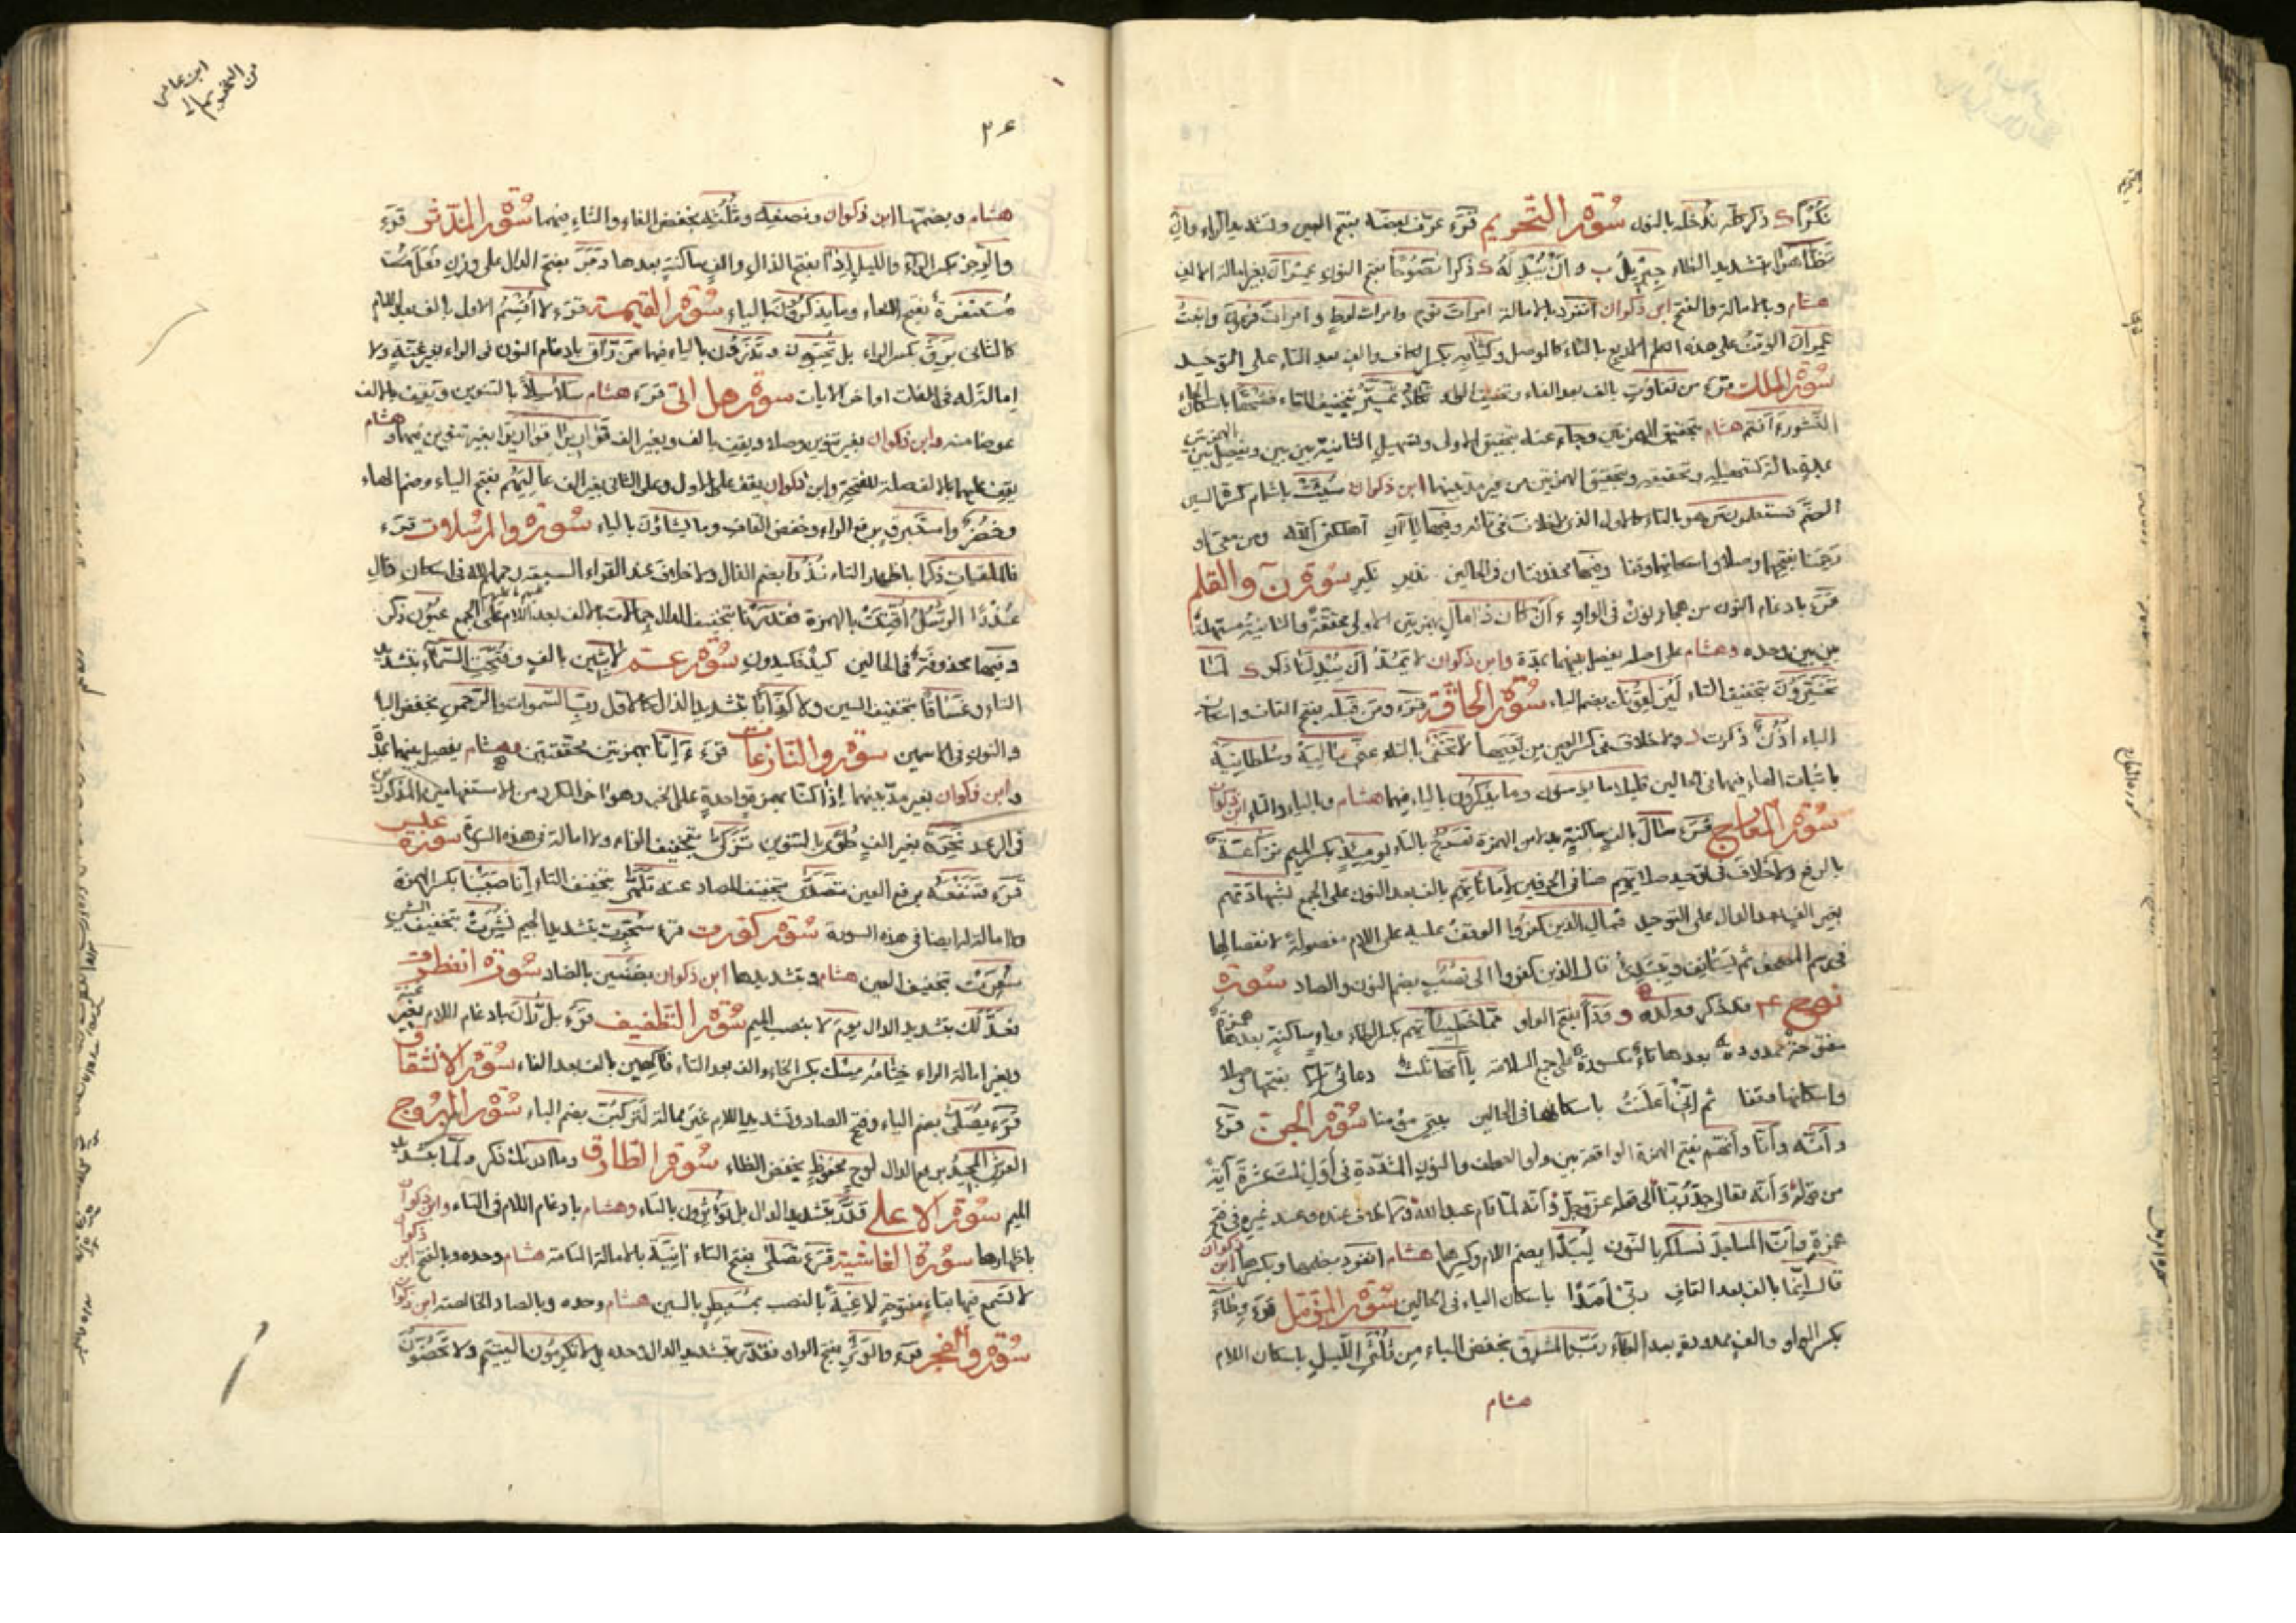 نُكُرًا ذكر ندخله بالنون سورة التحريم قرء عرّف بعضه بفتح العين وتشديد الراء وإن
تظّاهرا بتشديد الظاء جبريل وأن يبدله ذكرا نصوحا بفتح النون عمران بغير امالة الالف
هشام وبالامالة والفتح ابن ذكوان انفرد بالامالة امرأت نوح وامرأت لوط وامرأت فرعون وابنت
عمران الوقف على هذه الكلم الاربع بالتاء كالوصل وكتابه بكسر الكاف والف بعد التاء على التوحيد
سورة الملك قرء من تفاوت بالف بعد الفاء وتخفيف الواو تكاد تميز بتخفيف التاء فسحقا باسكان الحاء
النشور ءامنتم هشام بتحقيق الهمزتين وجاء عنه بتحقيق الاولى وتسهيل الثانية بين بين ويفصل بين الهمزتين
بمدة في حالة تسهيله وتحقيقه وبتحقيق الهمزتين من غير مد بينهما ابن ذكوان سيئت باشمام كسرة السين
الضم فستعلمون من هو بالتاء كالاول الذي لاخلاف في تائه وفيها ياآن اهلكني الله ومن معي او
رحمنا بفتحهما وصلا واسكانهما وقفا وفيها محذوفتان في الحالين نذير نكير سورة ن والقلم
قرء بادغام النون من هجاء نون في الواو ءأن كان ذا مال بهمزتين الاولى محققة والثانية مسهلة
بين بين وحده وهشام على اصله يفصل بينهما بمدة وابن ذكوان لا يمد أن يبدلنا ذكر لما
تخيرون بتخفيف التاء ليزلقونك بضم الياء سورة الحاقة قرء ومن قبله بفتح القاف واسكان
الباء أذن ذكرت ولاخلاف في كسر العين من تعيها لا تخفى بالتاء عني ماليه وسلطانيه
باثبات الهاء فيهما في الحالين قليلا ما يؤمنون وما يذكرون بالياء فيهما هشام وبالياء والتاء ابن ذكوان
سورة المعارج قرء سال بالف ساكنة بدلا من الهمزة تعرج بالتاء يومئذ بكسر الميم نزاعة
بالرفع ولاخلاف في توحيد صلاتهم هنا في الحرفين لأماناتهم بالف بعد النون على الجمع بشهادتهم
بغير الف بعد الدال على التوحيد فمال الذين كفروا الوقف عليه على اللام مفصولة لانفصالها
في رسم المصحف ثم يستأنف ويبتدئ قال الذين كفروا الى نصب بضم النون والصاد سورة
نوح قد ذكر وولده وودا بفتح الواو مما خطيئاتهم بكسر الطاء وياء ساكنة بعدها همزة
مفتوحة ممدودة بعدها تاء مكسورة على جمع السلامة ياآتها ثلث دعائي إلا بفتحها وصلا
واسكانها وقفا ثم إني أعلنت باسكانها في الحالين بيتي مؤمنا سورة الجن قرء
وأنه وأنا وأنهم بفتح الهمزة الواقعة بين واو العطف والنون المشددة في أول ثلث عشرة آية
من قوله وأنه تعالى جد ربنا الى قوله عز وجل وأنه لما قام عبد الله ولاخلاف عنده وعند غيره في فتح
همزة وأن المساجد نسلكه بالنون لبدا بضم اللام وكسرها هشام انفرد بضمها وبكسرها ابن ذكوان
قال إنما بالف بعد القاف ربي أمدا باسكان الياء في الحالين سورة المزمل قرء وطاء
بكسر الواو والف ممدودة بعد الطاء رب المشرق بخفض الباء من ثلثي الليل باسكان اللام
هشام
ابن عامر
من التحريم الى
٢٤
هشام وبضمها ابن ذكوان ونصفه وثلثه بخفض الفاء والثاء فيهما سورة المدثر قرء
والرجز بكسر الراء والليل إذا بفتح الذال والف ساكنة بعدها دبر بفتح الدال على وزن فعل
مستنفرة بفتح الفاء وما يذكرون بالياء سورة القيمة قرء لا أقسم الاول بالف بعد اللام
كالثاني برق بكسر الراء بل يحبون ويذرون بالياء فيهما من راق بادغام النون في الراء بغير غنة ولا
امالة له في الفات اواخر الايات سورة هل اتى قرء هشام سلاسلا بالتنوين ويقف بالالف
عوضا منه وابن ذكوان بغير تنوين وصلا ويقف بالف وبغير الف قوارير قوارير بغير تنوين فيهما وهشام
يقف عليهما بالالف صلة للفتحة وابن ذكوان يقف على الاول وعلى الثاني بغير الف عاليهم بفتح الياء وضم الهاء
وخضر وإستبرق برفع الراء وخفض القاف وما يشاؤن بالياء سورة والمرسلات قرء
فالملقيات ذكرا باظهار التاء نذرا بضم الذال ولاخلاف عند القراء السبعة رحمهم الله في اسكان ذال
عذرا الرسل أقتت بالهمزة فقدرنا بتخفيف الدال جمالات بالف بعد اللام على الجمع عيون ذكر
وفيها محذوفة في الحالين كيد فكيدون سورة عم لابثين بالف وفتحت السماء بتشديد
التاء وغساقا بتخفيف السين ولا كذابا بتشديد الذال كالاول رب السموات والرحمن بخفض الباء
والنون في الاسمين سورة والنازعات قرء ءإنا بهمزتين محققتين وهشام يفصل بينهما بمدة
وابن ذكوان بغير مد بينهما إذا كنا بهمزة واحدة على الخبر وهو اخر المكرر من الاستفهامين المذكورين
في الرعد نخرة بغير الف طوى بالتنوين تزكى بتخفيف الزاء ولا امالة في هذه السورة سورة عبس
قرء فتنفعه برفع العين تصدى بتخفيف الصاد عنه تلهى بتخفيف التاء إنا صببنا بكسر الهمزة
ولا امالة له ايضا في هذه السورة سورة كورت قرء سجرت بتشديد الجيم نشرت بتخفيف الشين
سعرت بتخفيف العين هشام وبتشديدها ابن ذكوان بضنين بالضاد سورة انفطرت
فعدلك بتشديد الدال يوم لا بنصب الميم سورة التطفيف قرء بل ران بادغام اللام بغير غنة
وبغير امالة الراء ختامه مسك بكسر الخاء والف بعد التاء فاكهين بالف بعد الفاء سورة الانشقاق
قرء يصلى بضم الياء وفتح الصاد وتشديد اللام غير ممالة لتركبن بضم الباء سورة البروج
العرش المجيد برفع الدال لوح محفوظ بخفض الظاء سورة الطارق وما ادراك ذكر ولما بتشديد
الميم سورة الاعلى قدر بتشديد الدال بل تؤثرون بالتاء وهشام بادغام اللام في التاء وابن ذكوان
باظهارها سورة الغاشية قرء تصلى بفتح التاء انية بالامالة التامة هشام وحده وبالفتح ابن ذكوان
لا تسمع فيها بتاء مفتوحة لاغية بالنصب بمسيطر بالسين هشام وحده وبالصاد الخالصة ابن ذكوان
سورة والفجر قرء والوتر بفتح الواو فقدر بتشديد الدال وحده بل لا تكرمون اليتيم ولا تحضون